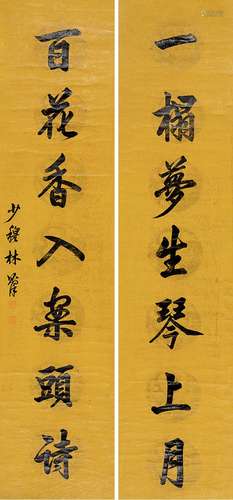 一榻夢生琴上月
百花香入案頭詩
少穆林